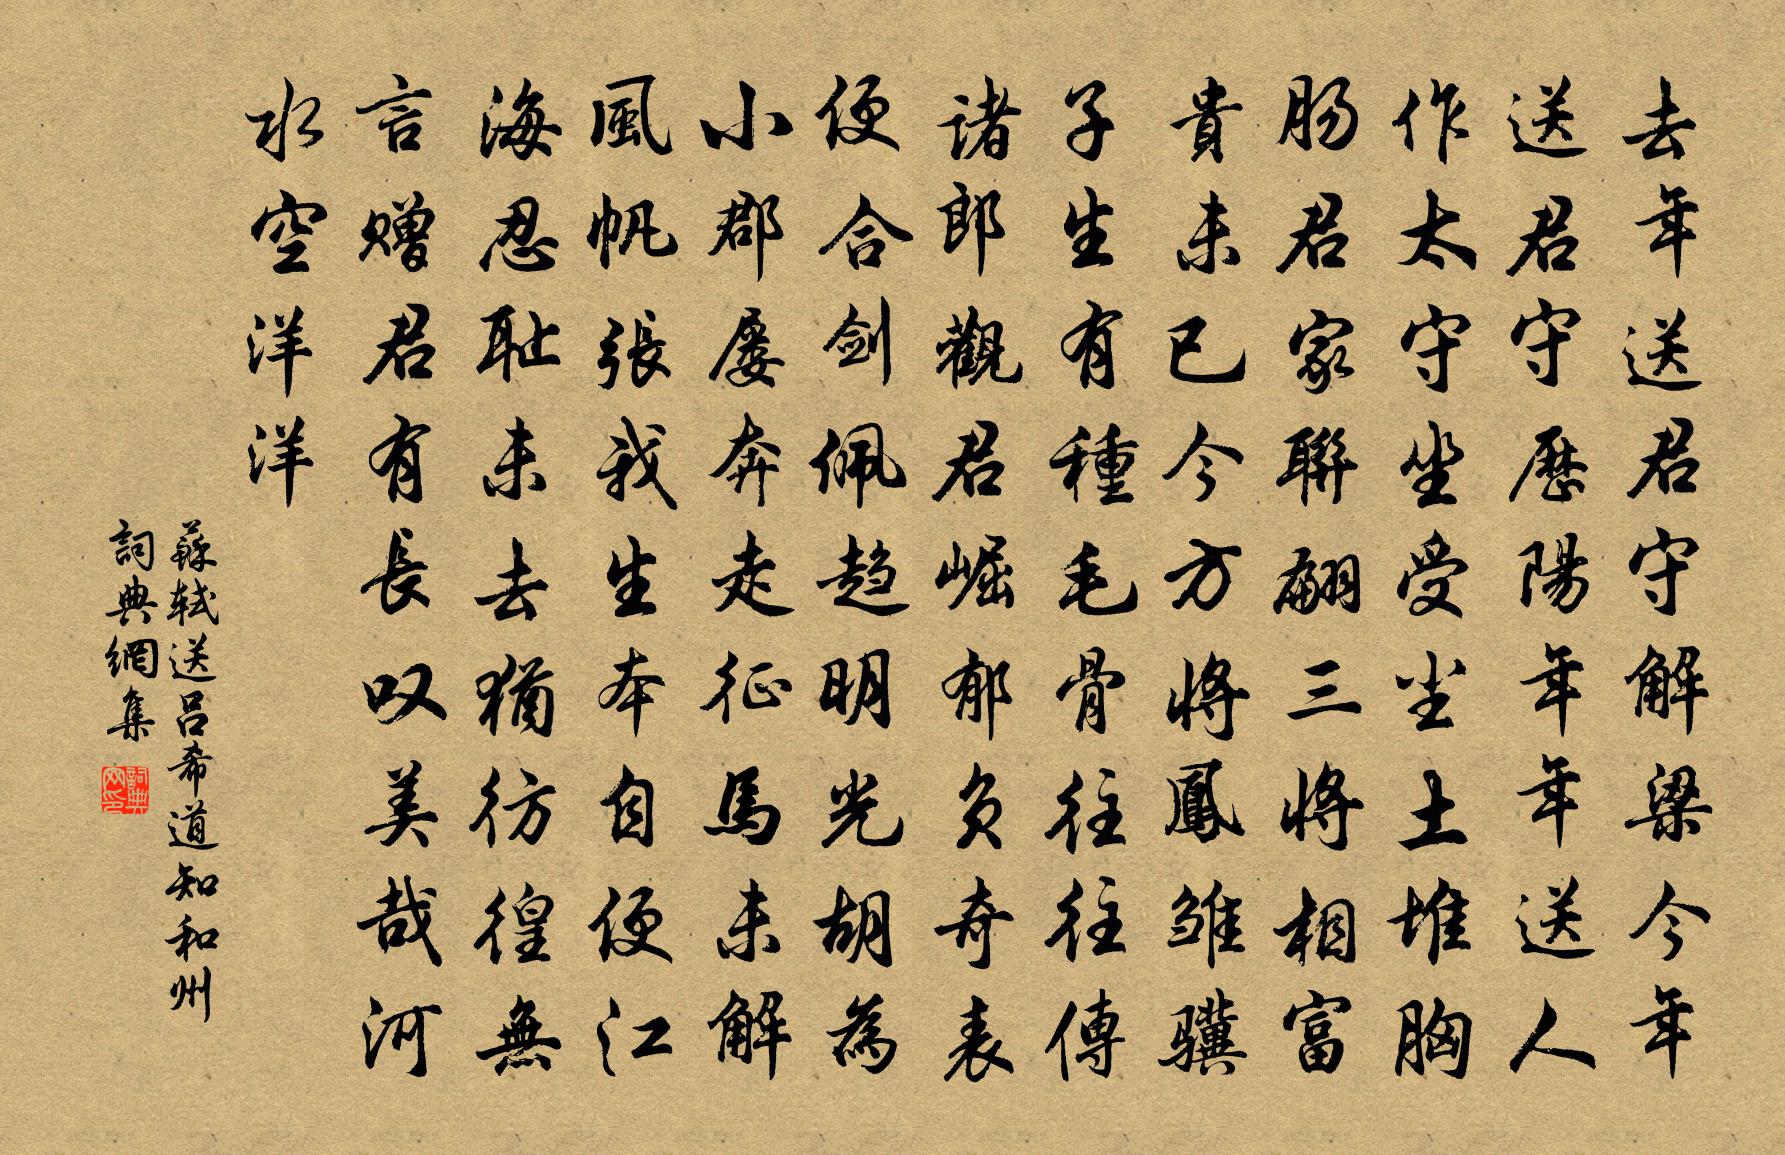 去年送君守解梁今年
送君守歷陽年年送人
作太守坐受尘土堆胸
肠君家聯翩三將相富
貴未已今方將鳳雏骥
子生有種毛骨往往傳
诸郎觀君崛郁负奇表
便合剑佩趋明光胡為
小郡屡奔走征馬未解
風帆張我生本自便江
海忍耻未去猶彷徨無
言赠君有長叹美哉河
水空洋洋
蘇轼送呂希道知和州
詞典網集
詞典网印